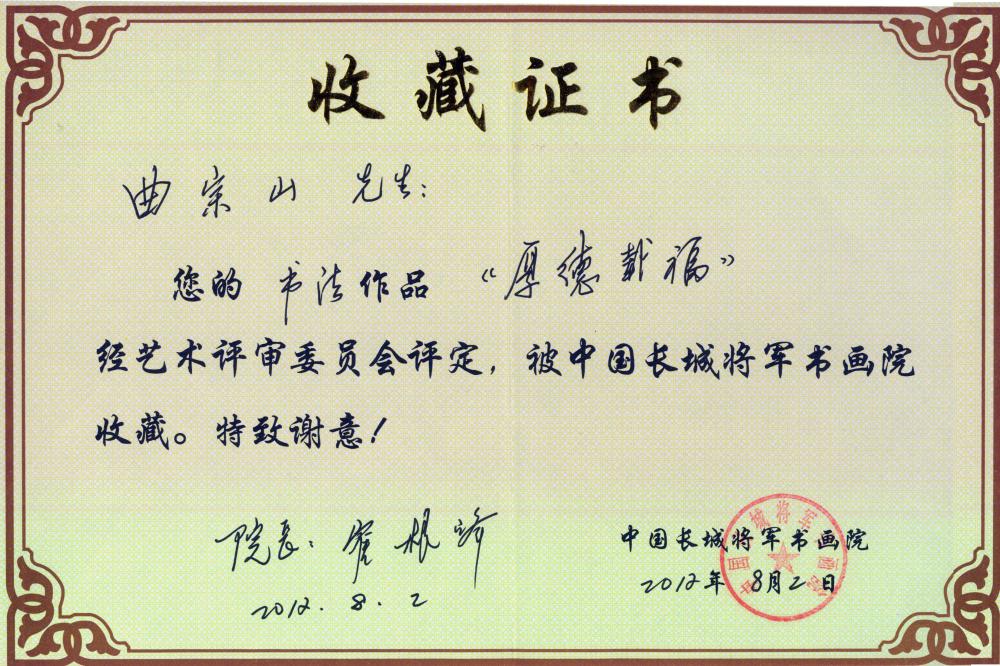 收藏证书
曲宗山 先生：
您的 书法作品 “厚德载福”
经艺术评审委员会评定，被中国长城将军书画院
收藏。特致谢意！
院长：
中国长城将军书画院
2012.8.2
2012年 8月2日